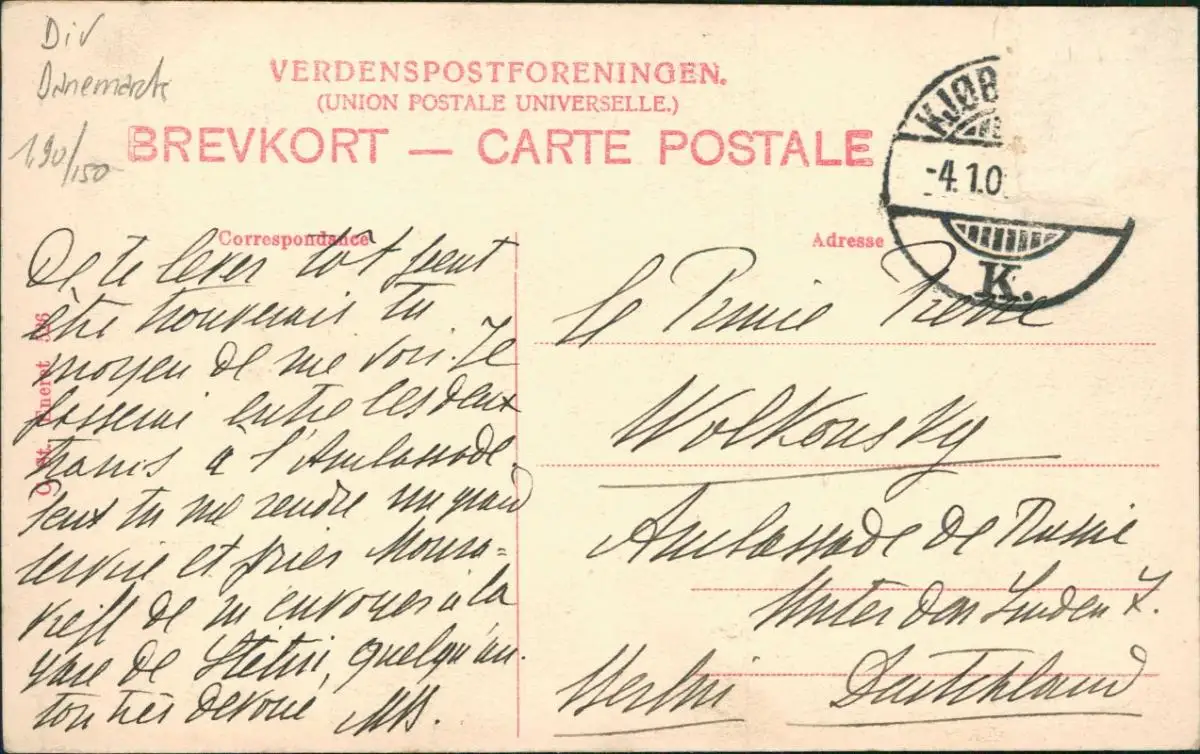 Div
Danemark
1,90/150
VERDENSPOSTFORENINGEN.
(UNION POSTALE UNIVERSELLE.)
BREVKORT — CARTE POSTALE
KJØB
-4.1.0
K.
Correspondance
Adresse
Eneret
De te lever tôt peut
être trouverais tu
moyen de me voir. Je
passerai entre les deux
trains à l'Ambassade.
Peux tu me rendre un grand
service et prier Moura=
vieff de m'envoyer à la
gare de Stettin, quelqu'un.
ton très dévoué MB.
le Prince Pierre
Wolkonsky
Ambassade de Russie
Unter den Linden 7.
Berlin Deutchland